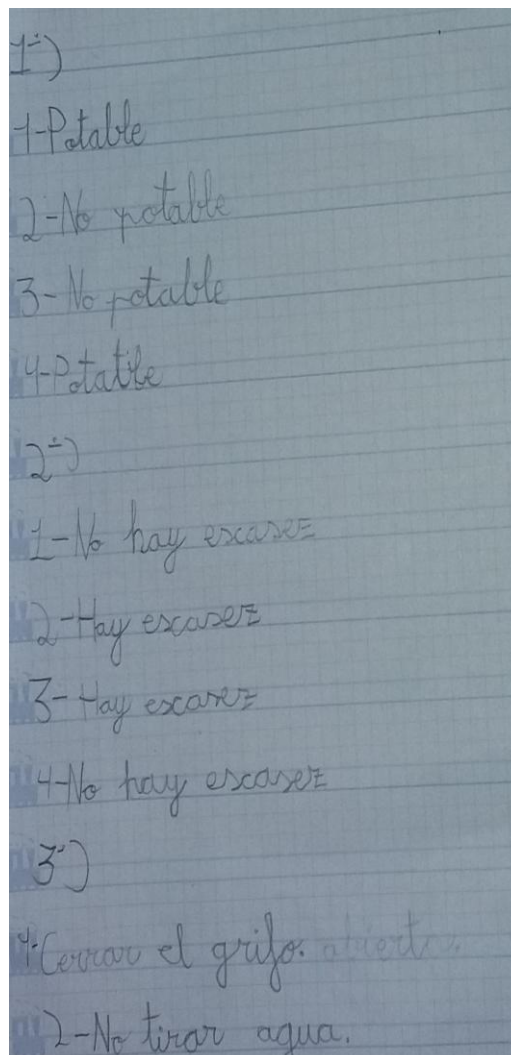 1-)
1-Potable
2-No potable
3-No potable
4-Potable
2-)
1-No hay escasez
2-Hay escasez
3-Hay escasez
4-No hay escasez
3-)
1-Cerrar el grifo. abierto.
2-No tirar agua.